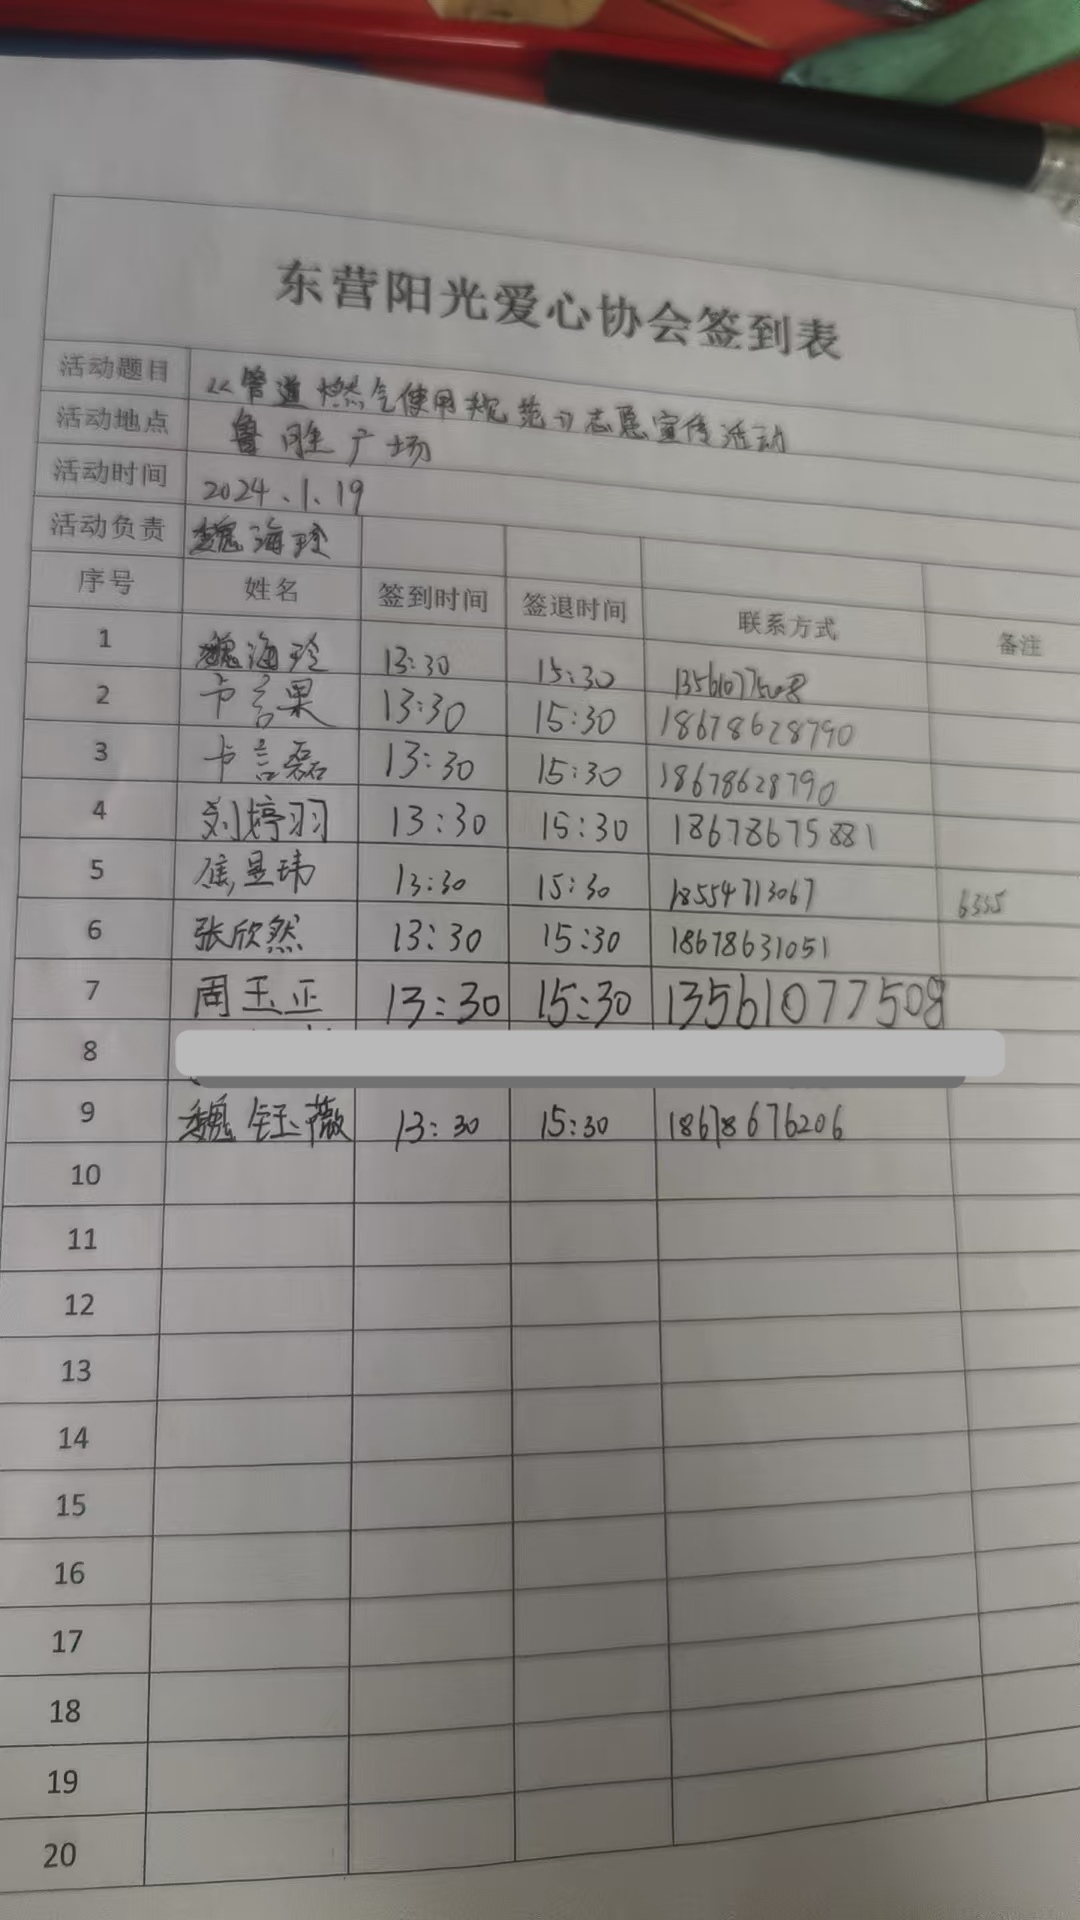 东营阳光爱心协会签到表
活动题目 《管道燃气使用规范》志愿宣传活动
活动地点 鲁胜广场
活动时间 2024.1.19
活动负责 魏海玲
序号 姓名 签到时间 签退时间 联系方式 备注
1 魏海玲 13:30 15:30 13561077508
2 卞言果 13:30 15:30 18678628790
3 卞言磊 13:30 15:30 18678628790
4 刘婷羽 13:30 15:30 18678675881
5 13:30 15:30 18554713067 6335
6 张欣然 13:30 15:30 18678631051
7 周玉正 13:30 15:30 13561077508
8
9 魏钰薇 13:30 15:30 18678676206
10
11
12
13
14
15
16
17
18
19
20